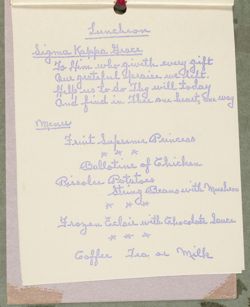 Luncheon
Sigma Kappa Grace
To Him who giveth every gift
Our grateful praise we lift.
Help us to do Thy will today
And find in Thee one heart, one way
Menu
Fruit Supreme Princess
* * *
Ballotine of Chicken
Rissolee Potatoes
String Beans with Mushroom
* * *
Frozen Eclair with Chocolate Sauce
* * *
Coffee Tea or Milk